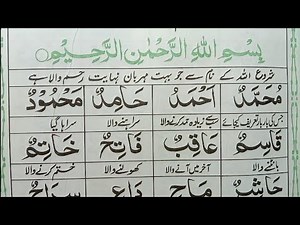 بِسْمِ اللهِ الرَّحْمٰنِ الرَّحِيْمِ
شروع اللہ کے نام سے جو بہت مہربان نہایت رحم والا ہے
مُحَمَّدٌ اَحْمَدُ حَامِدٌ مَحْمُوْدٌ
جس کی بار بار تعریف کیجائے سب سے زیادہ حمد کرنے والا سراہنے والا سراہا گیا
قَاسِمٌ عَاقِبٌ فَاتِحٌ خَاتِمٌ
بانٹنے والا آخر میں آنے والا کھولنے والا ختم کرنے والا
حَاشِرٌ مَاحٍ دَاعٍ سِرَاجٌ